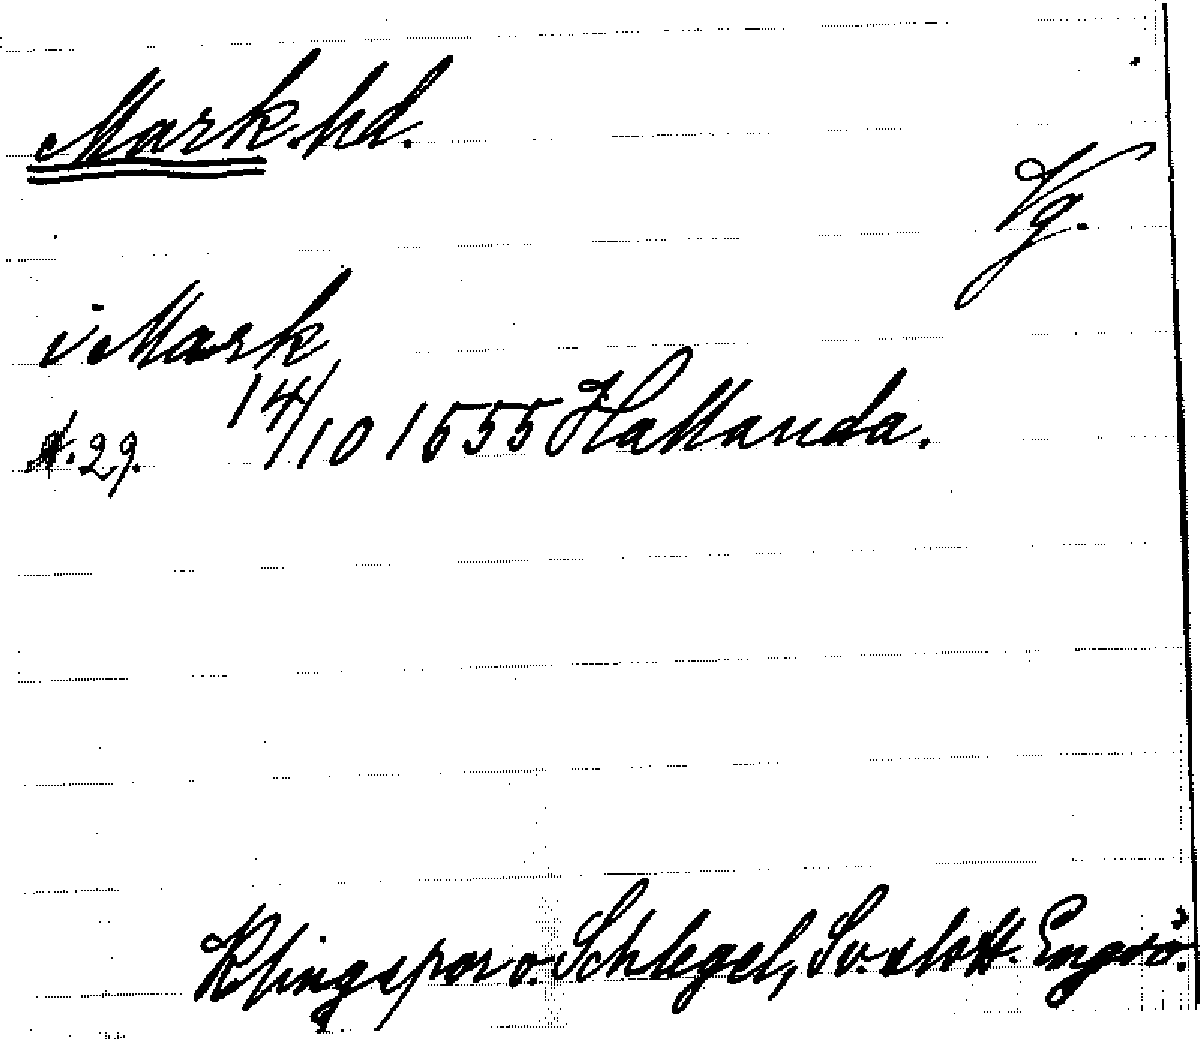 Mark.hd.
Vg.
i Mark
14/10 1555 Hallanda.
s. 29.
Klingspor o. Schlegel, Sv. slott. Engsö.